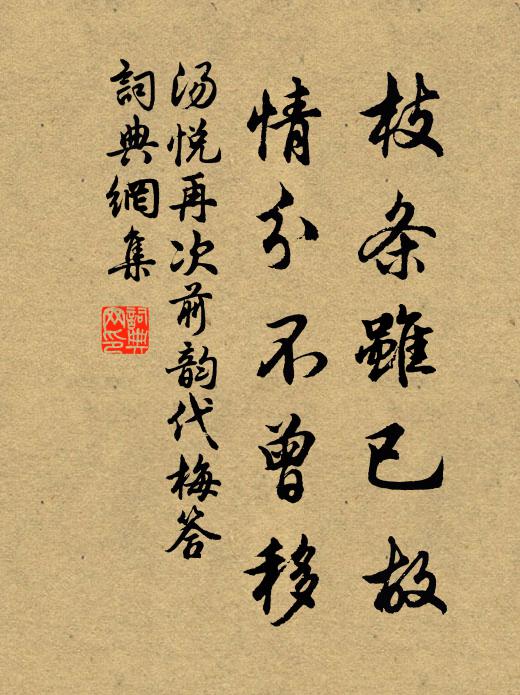 枝条雖已故
情分不曾移
汤悦再次前韵代梅答
詞典網集
詞典
网印